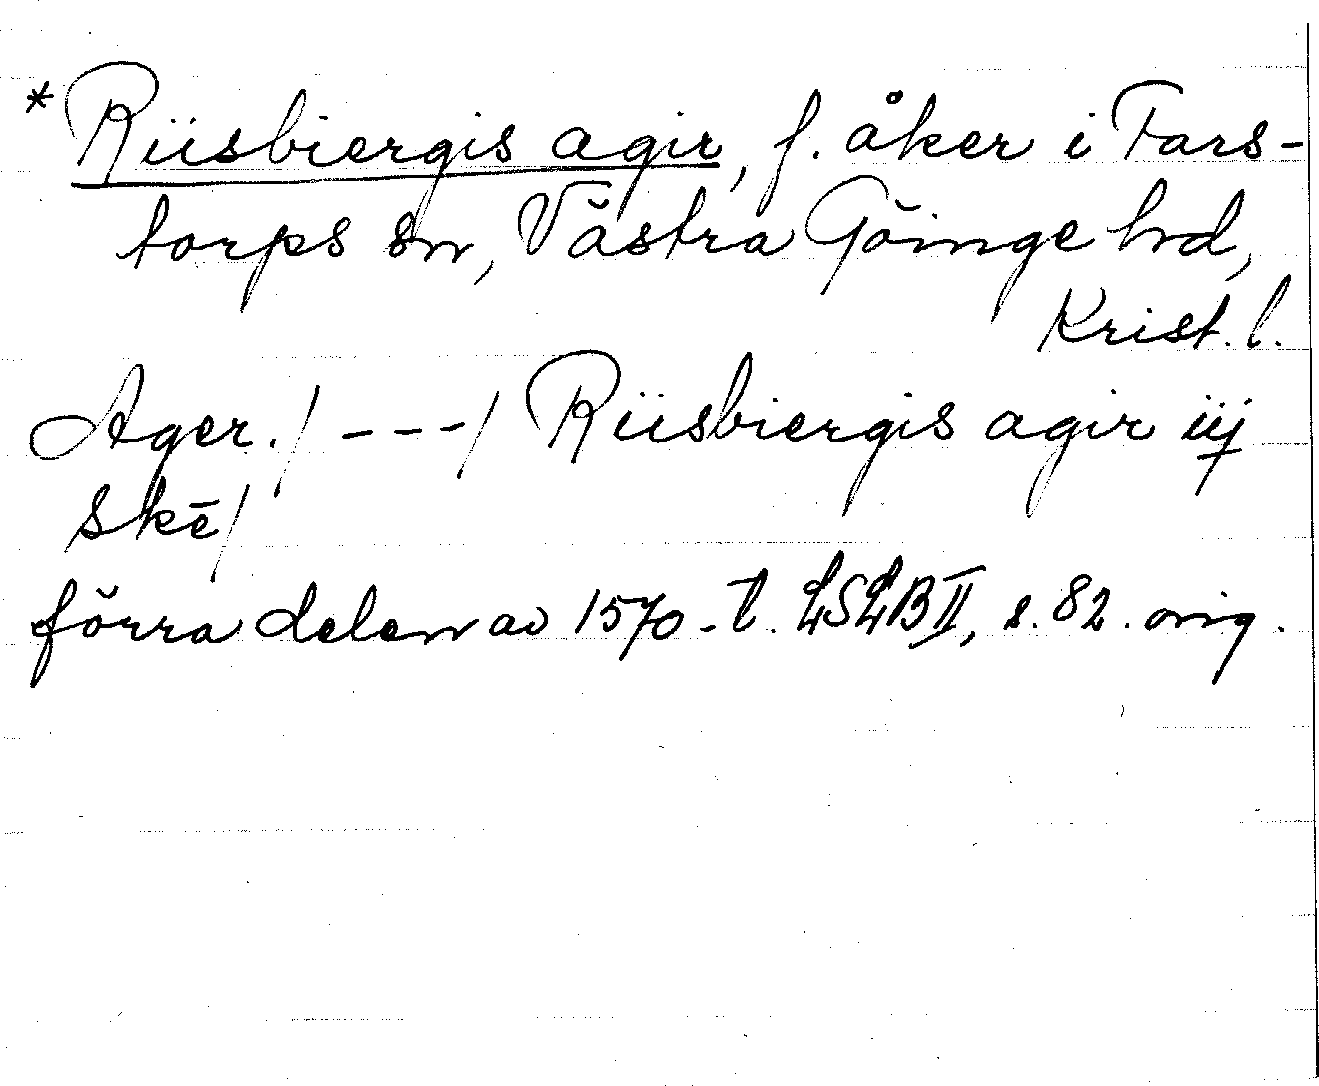 * Riisbiergis agir, f. åker i Fars-
torps sn, Västra Göinge hd,
Krist. l.
Ager. / - - - / Riisbiergis agir iij
skē /
förra delen av 1570-t. LSLB II, s. 82. orig.